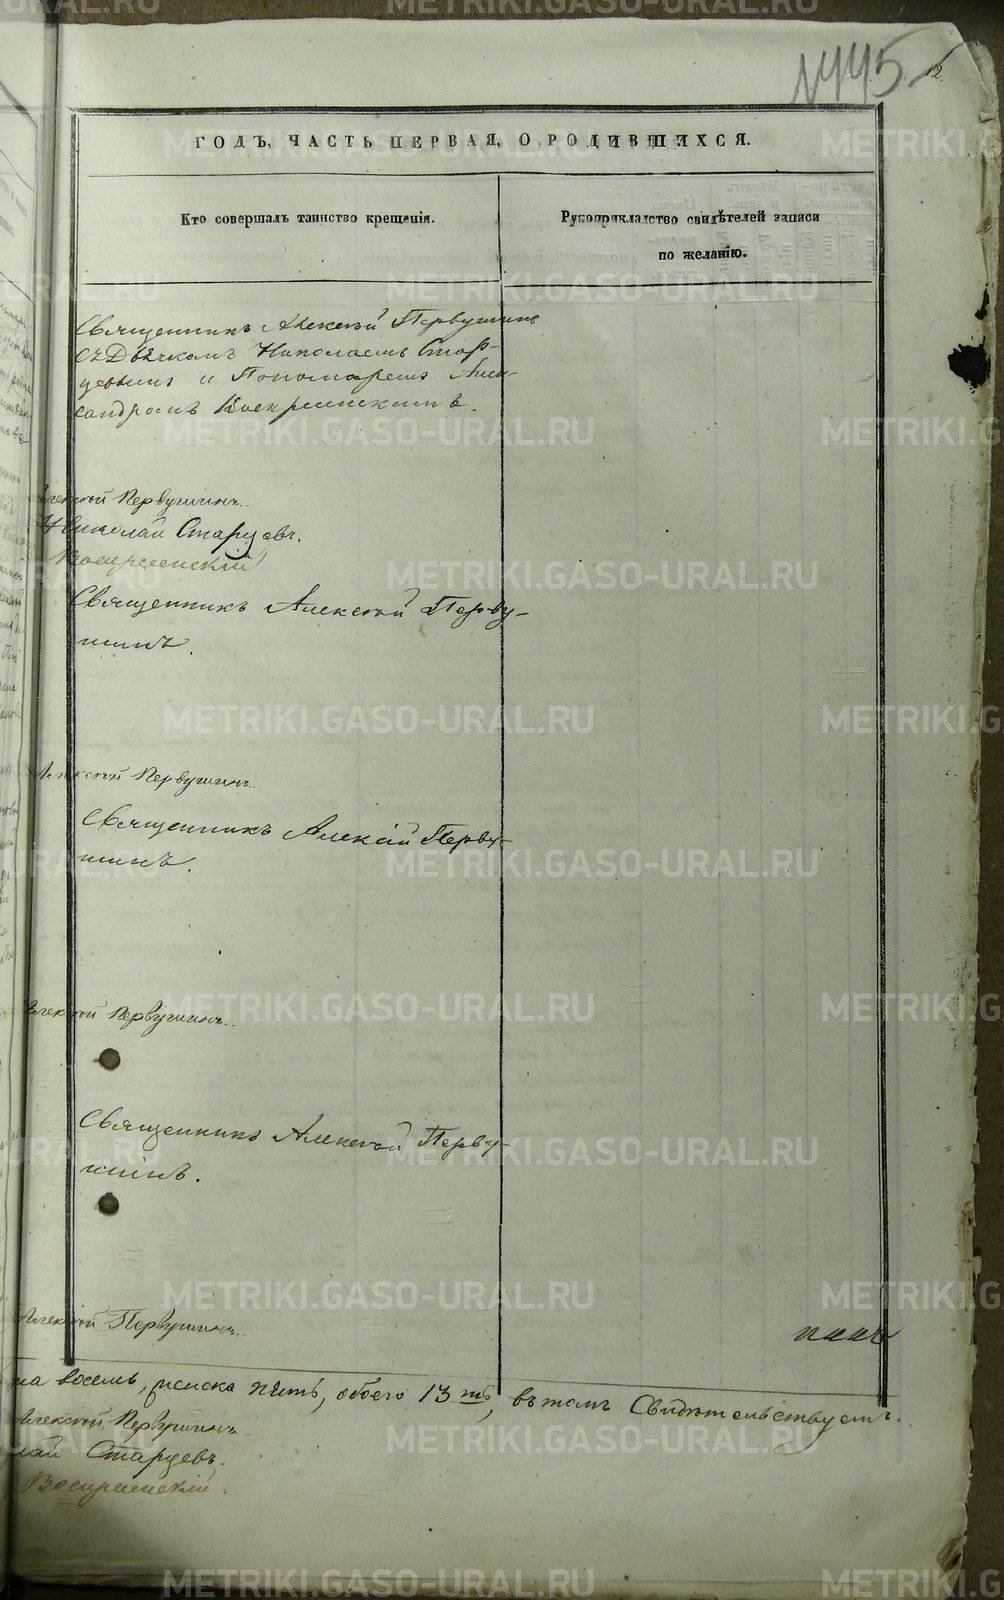 №445
2
ГОДЪ, ЧАСТЬ ПЕРВАЯ, О РОДИВШИХСЯ.
Кто совершалъ таинство крещенія.
Рукоприкладство свидѣтелей записи
по желанію.
Священникъ Алексѣй Первушинъ
съ Дьячкомъ Николаемъ Стар-
цевымъ и Пономаремъ Алек-
сандромъ Воскресенскимъ.
Алексѣй Первушинъ.
Николай Старцевъ.
Воскресенскій
Священникъ Алексѣй Перву-
шинъ.
Алексѣй Первушинъ.
Священникъ Алексѣй Перву-
шинъ.
Алексѣй Первушинъ.
Священникъ Алексѣй Перву-
шинъ.
Алексѣй Первушинъ.
восемь, женска пять, обоего 13 ть, въ томъ Свидѣтельствуемъ.
Алексѣй Первушинъ.
лай Старцевъ.
Воскресенскій.
METRIKI.GASO-URAL.RU